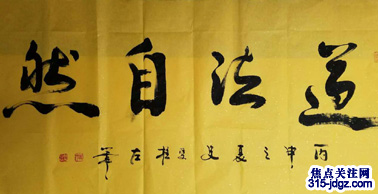 道法自然
丙申之夏 左笔
焦点关注网
315-jdgz.com